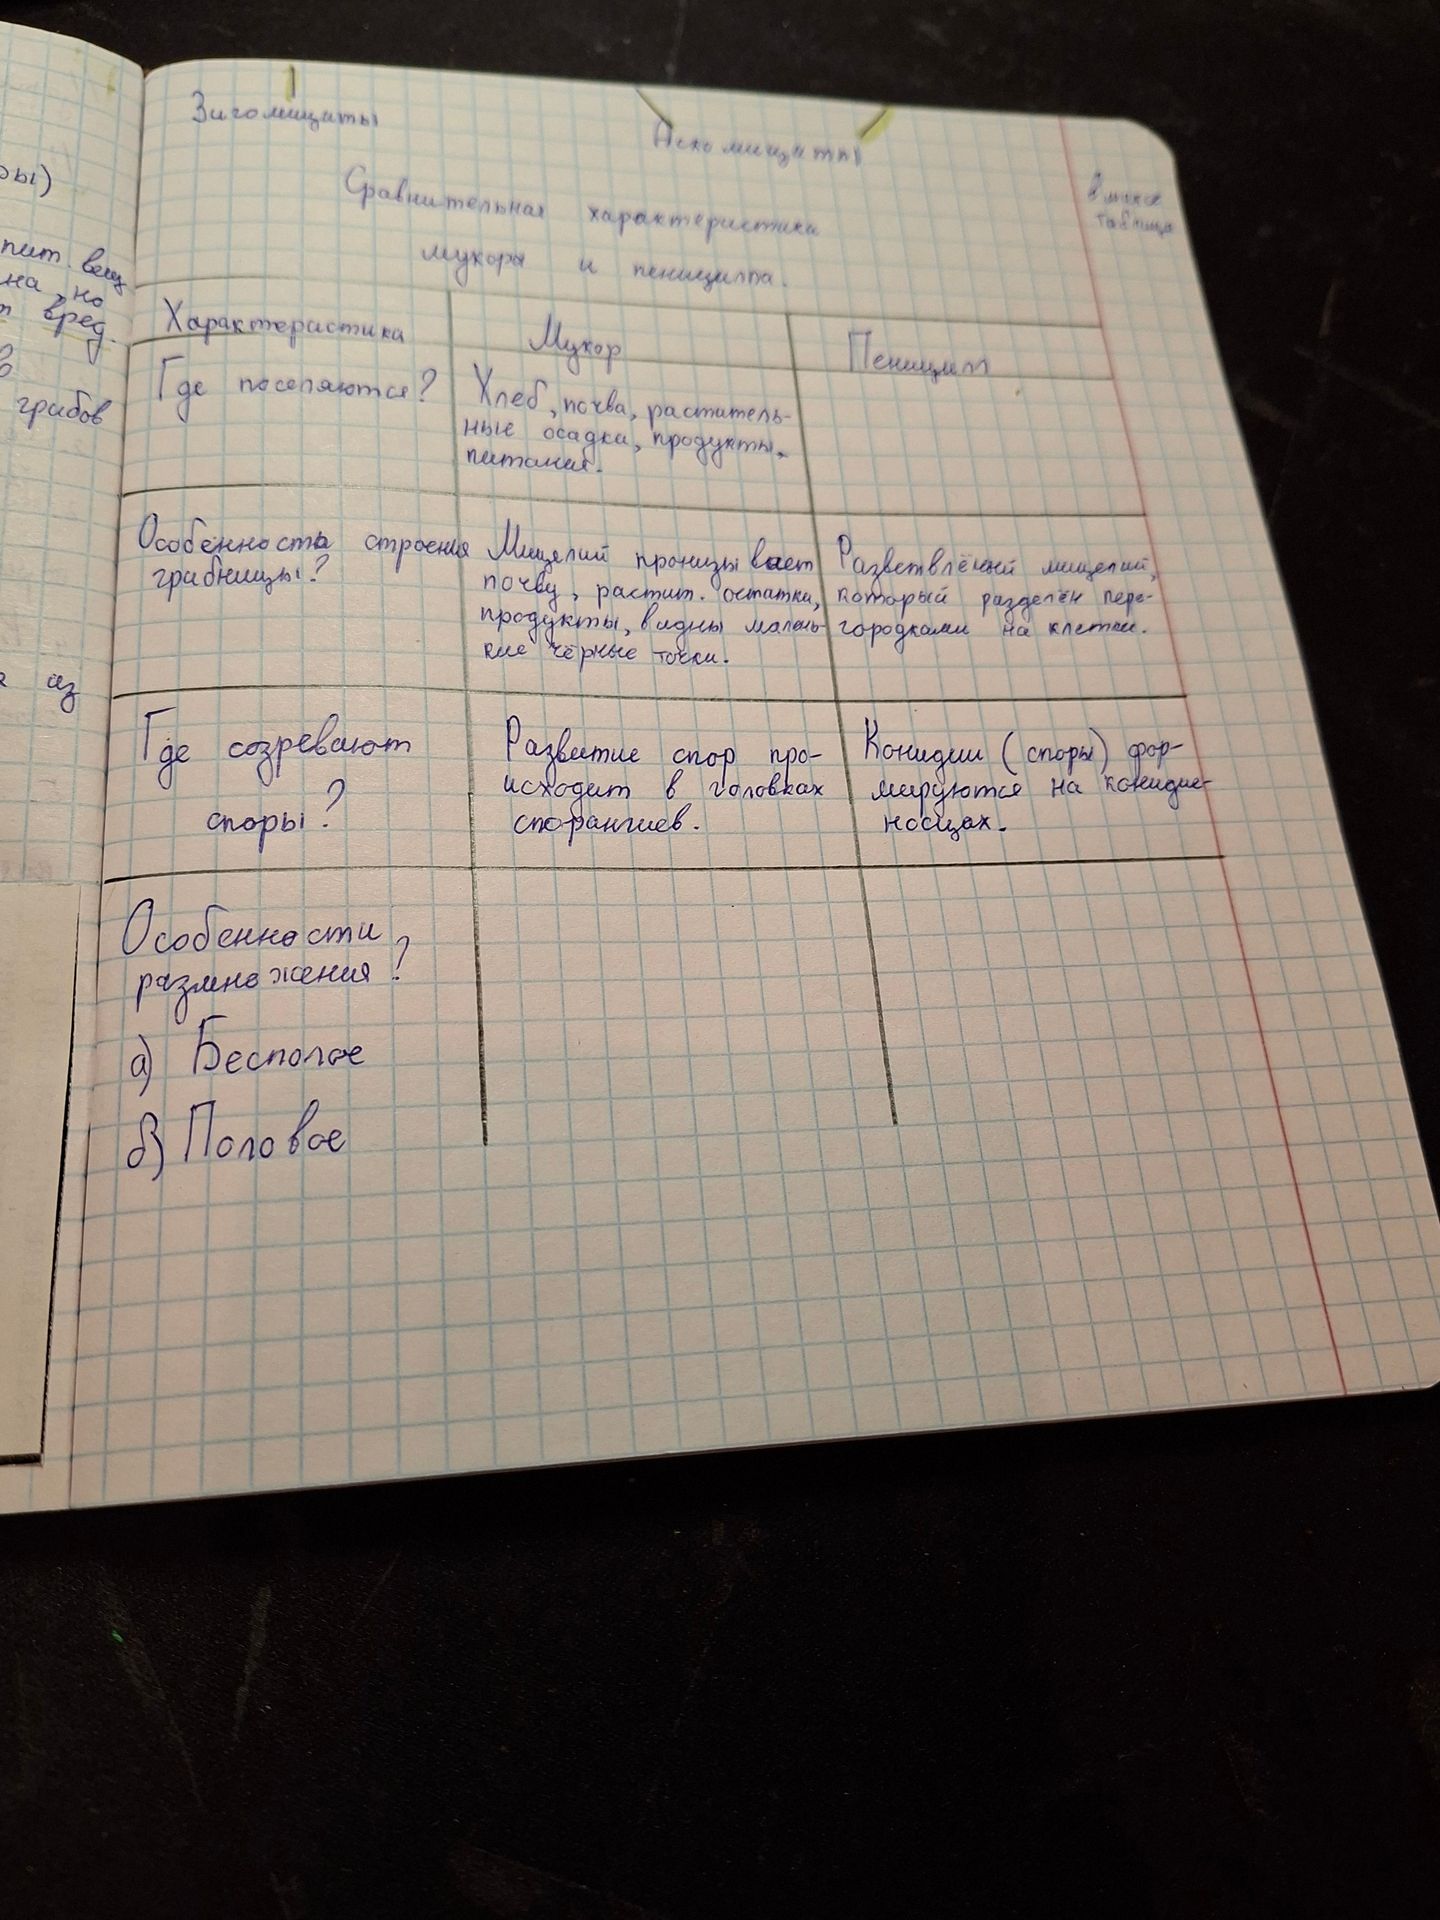 Зигомицеты
Аскомицеты
Сравнительная характеристика
мукора и пеницилла.
таблица
Характеристика
Мукор
Пеницилл
Где поселяются?
Хлеб, почва, раститель-
ные осадки, продукты,
питания.
Особенность строения
грибницы?
Мицелий пронизывает
почву, растит. остатки,
продукты, видны малень-
кие чёрные точки.
Разветвлённый мицелий,
который разделён пере-
городками на клетки.
Где созревают
споры?
Развитие спор про-
исходит в головках
спорангиев.
Конидии (споры) фор-
мируются на конидие-
носцах.
Особенности
размножения?
а) Бесполое
б) Половое
ры)
пит. вещ
на, но
т вред.
в
грибов
из